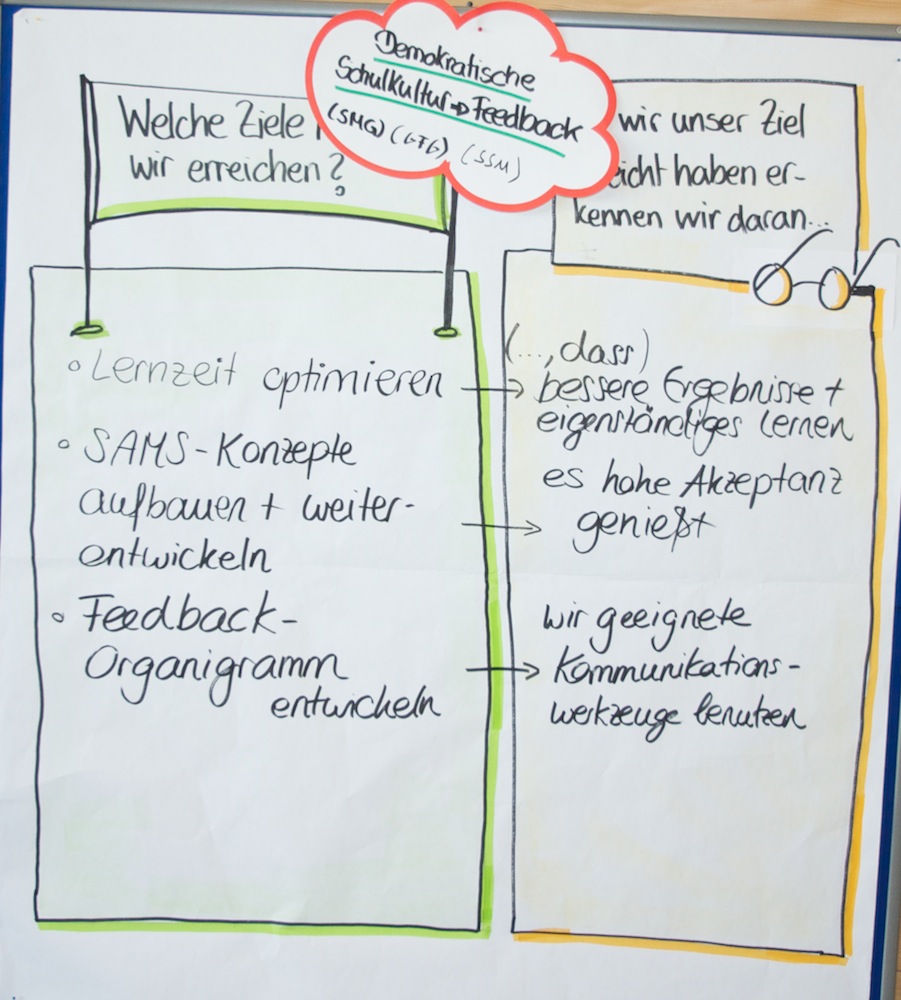 Demokratische
Schulkultur → Feedback
(SMG) (GTG) (SSM)
Welche Ziele
wir erreichen?
wir unser Ziel
eicht haben er-
kennen wir daran...
(..., dass)
• Lernzeit optimieren → bessere Ergebnisse +
eigenständiges lernen
• SAMS-Konzepte
aufbauen + weiter-
entwickeln
→ es hohe Akzeptanz
genießt
• Feedback-
Organigramm
entwickeln
→ wir geeignete
Kommunikations-
werkzeuge benutzen